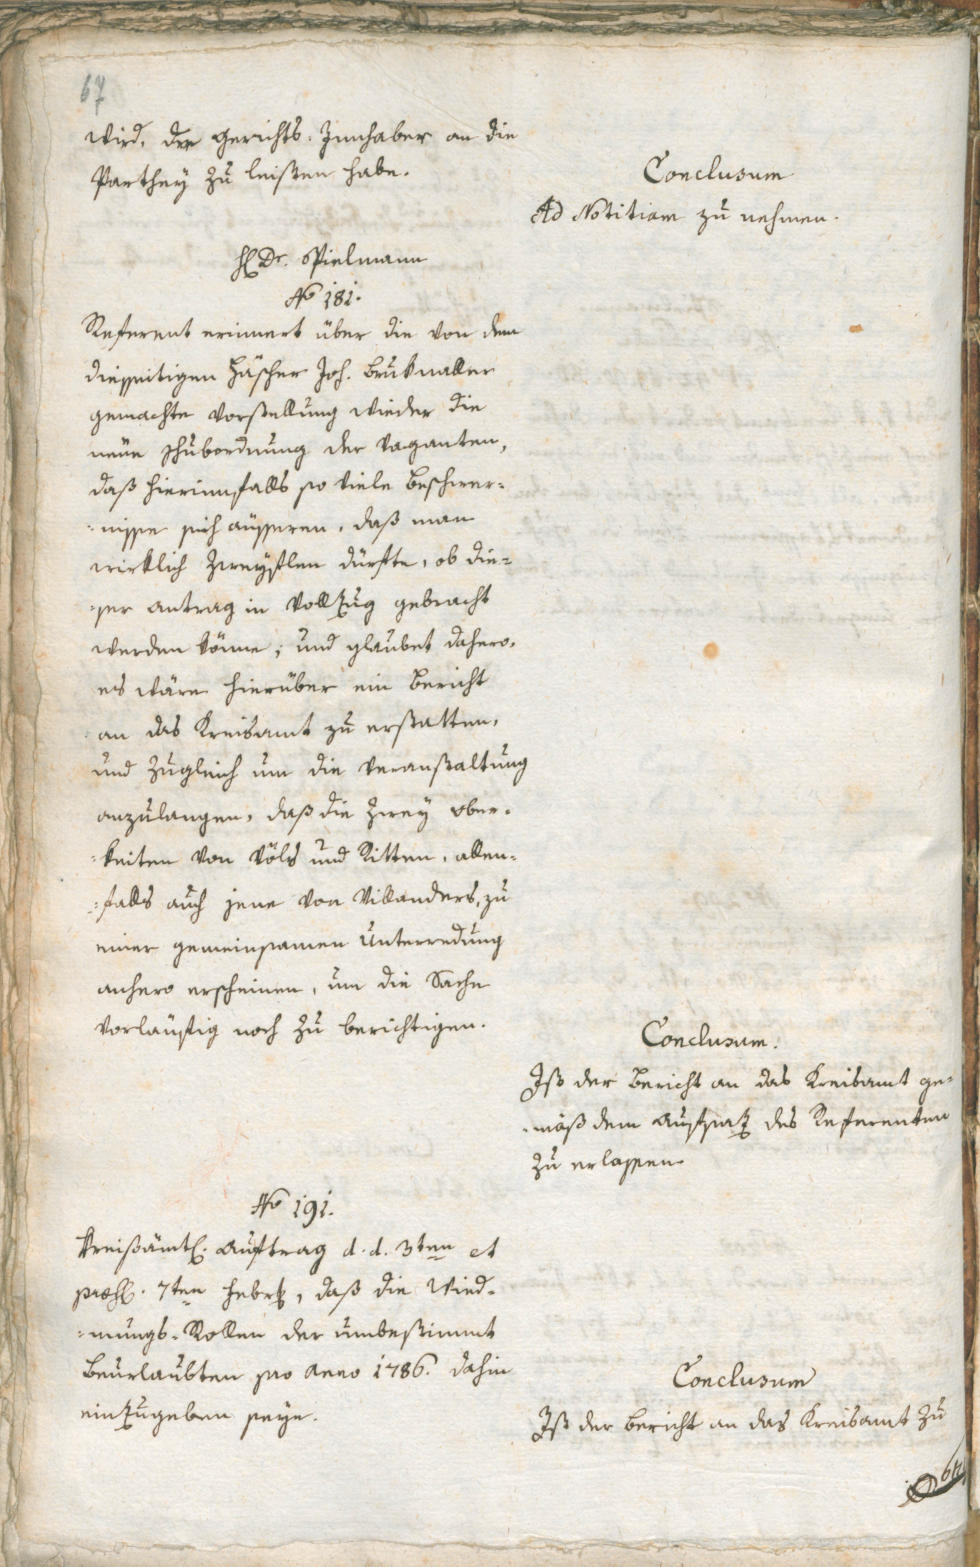 67
wird, der Gerichts-Innhaber an die
Parthey zu leisten habe.
Conclusum
Ad Notitiam zu nehmen.
H. Dr. Spielmann
No 181.
Referent erinnert über die von dem
diesseitigen Häscher Joh. Bruknaller
gemachte Vorstellung wieder die
neue Schubordnung der Vaganten,
daß hierinnfalls so viele Beschwer-
-nisse sich äusseren, daß man
wirklich zweyflen dürfte, ob die-
-ser antrag in Vollzug gebracht
werden könne; und glaubet dahero,
es wäre hierüber ein Bericht
an das Kreisamt zu erstatten,
und zugleich um die Veranstaltung
anzulangen, daß die zwey ober-
-keiten von Völs und Ritten, allen-
-falls auch jene von Villanders, zu
einer gemeinsamen Unterredung
anhero erscheinen, um die Sache
vorläufig noch zu berichtigen.
Conclusum.
Ist der Bericht an das Kreisamt ge-
-mäß dem Aufsatz des Referenten
zu erlassen
No 191.
Kreisämtl. Auftrag d. d. 3ten et
praes. 7ten Hebr., daß die Wied-
-mungs-Rollen der unbestimmt
Beurlaubten pro Anno 1786. dahin
einzugeben seye.
Conclusum
Ist der Bericht an das Kreisamt zu